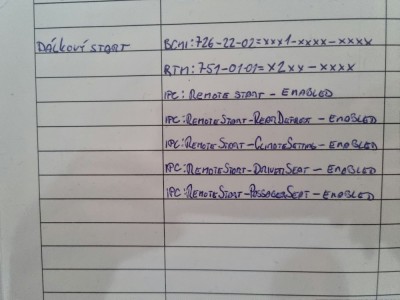 DÁLKOVÝ START BCMi:726-22-02=xxx1-xxxx-xxxx
RTM:751-01-01=x2xx-xxxx
IPC:REMOTE START - ENABLED
IPC:REMOTESTART-REARDEFROST - ENABLED
IPC:REMOTESTART-CLIMATESETTING - ENABLED
IPC:REMOTESTART-DRIVERSEAT - ENABLED
IPC:REMOTESTART-PASSAGERSEAT - ENABLED